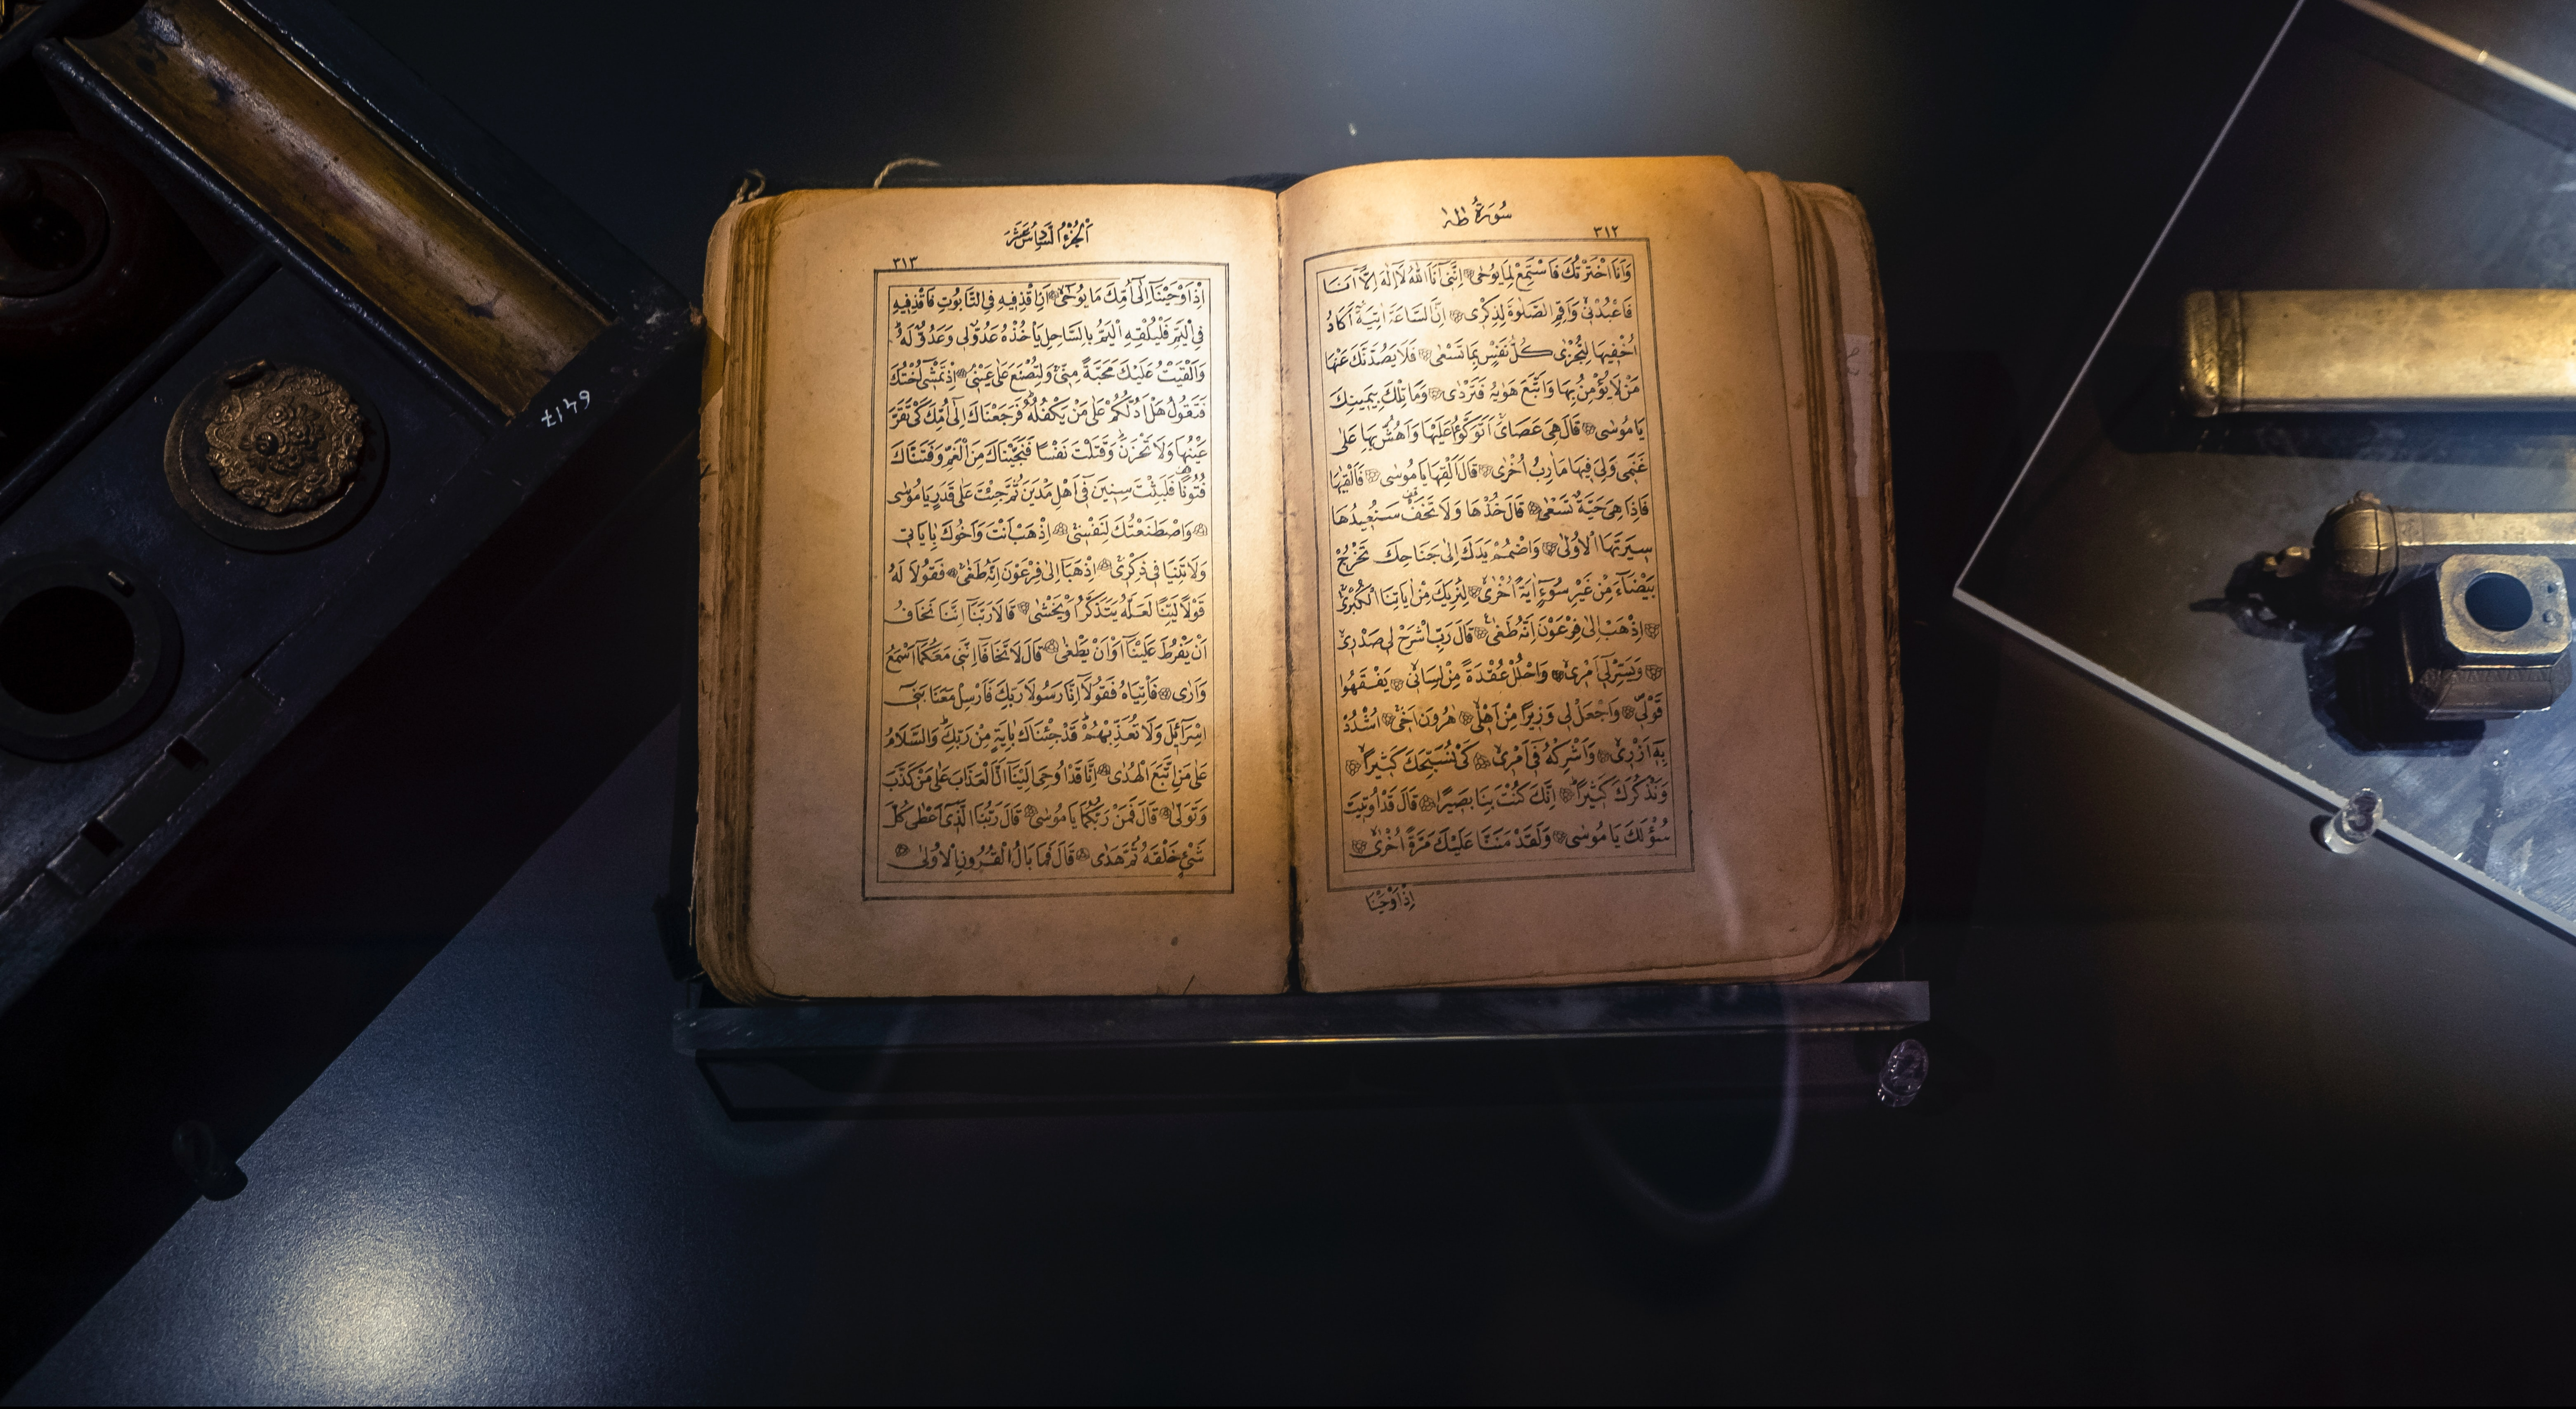 سُورَةُ طٰهٰ
٣١٢
وَاَنَا اخْتَرْتُكَ فَاسْتَمِعْ لِمَا يُوحٰى اِنَّنِي اَنَا اللّٰهُ لَا اِلٰهَ اِلَّا اَنَا
فَاعْبُدْنِي وَاَقِمِ الصَّلٰوةَ لِذِكْرِى اِنَّ السَّاعَةَ اٰتِيَةٌ اَكَادُ
اُخْفِيهَا لِتُجْزٰى كُلُّ نَفْسٍ بِمَا تَسْعٰى فَلَا يَصُدَّنَّكَ عَنْهَا
مَنْ لَا يُؤْمِنُ بِهَا وَاتَّبَعَ هَوٰيهُ فَتَرْدٰى وَمَا تِلْكَ بِيَمِينِكَ
يَا مُوسٰى قَالَ هِيَ عَصَايَ اَتَوَكَّؤُا عَلَيْهَا وَاَهُشُّ بِهَا عَلٰى
غَنَمِى وَلِيَ فِيهَا مَاٰرِبُ اُخْرٰى قَالَ اَلْقِهَا يَا مُوسٰى فَاَلْقٰيهَا
فَاِذَا هِيَ حَيَّةٌ تَسْعٰى قَالَ خُذْهَا وَلَا تَخَفْ سَنُعِيدُهَا
سِيرَتَهَا الْاُولٰى وَاضْمُمْ يَدَكَ اِلٰى جَنَاحِكَ تَخْرُجْ
بَيْضَاءَ مِنْ غَيْرِ سُوءٍ اٰيَةً اُخْرٰى لِنُرِيَكَ مِنْ اٰيَاتِنَا الْكُبْرٰى
اِذْهَبْ اِلٰى فِرْعَوْنَ اِنَّهُ طَغٰى قَالَ رَبِّ اشْرَحْ لِى صَدْرِى
وَيَسِّرْ لِي اَمْرِى وَاحْلُلْ عُقْدَةً مِنْ لِسَانِى يَفْقَهُوا
قَوْلِى وَاجْعَلْ لِى وَزِيرًا مِنْ اَهْلِى هٰرُونَ اَخِى اُشْدُدْ
بِهِ اَزْرِى وَاَشْرِكْهُ فِى اَمْرِى كَىْ نُسَبِّحَكَ كَثِيرًا
وَنَذْكُرَكَ كَثِيرًا اِنَّكَ كُنْتَ بِنَا بَصِيرًا قَالَ قَدْ اُوتِيتَ
سُؤْلَكَ يَا مُوسٰى وَلَقَدْ مَنَنَّا عَلَيْكَ مَرَّةً اُخْرٰى
اِذْ اَوْحَيْنَا
اَلْجُزْءُ السَّادِسَ عَشَرَ
٣١٣
اِذْ اَوْحَيْنَا اِلٰى اُمِّكَ مَا يُوحٰى اَنِ اقْذِفِيهِ فِى التَّابُوتِ فَاقْذِفِيهِ
فِى الْيَمِّ فَلْيُلْقِهِ الْيَمُّ بِالسَّاحِلِ يَاْخُذْهُ عَدُوٌّ لِى وَعَدُوٌّ لَهُ
وَاَلْقَيْتُ عَلَيْكَ مَحَبَّةً مِنِّى وَلِتُصْنَعَ عَلٰى عَيْنِى اِذْ تَمْشِى اُخْتُكَ
فَتَقُولُ هَلْ اَدُلُّكُمْ عَلٰى مَنْ يَكْفُلُهُ فَرَجَعْنَاكَ اِلٰى اُمِّكَ كَىْ تَقَرَّ
عَيْنُهَا وَلَا تَحْزَنَ وَقَتَلْتَ نَفْسًا فَنَجَّيْنَاكَ مِنَ الْغَمِّ وَفَتَنَّاكَ
فُتُونًا فَلَبِثْتَ سِنِينَ فِى اَهْلِ مَدْيَنَ ثُمَّ جِئْتَ عَلٰى قَدَرٍ يَا مُوسٰى
وَاصْطَنَعْتُكَ لِنَفْسِى اِذْهَبْ اَنْتَ وَاَخُوكَ بِاٰيَاتِى
وَلَا تَنِيَا فِى ذِكْرِى اِذْهَبَا اِلٰى فِرْعَوْنَ اِنَّهُ طَغٰى فَقُولَا لَهُ
قَوْلًا لَيِّنًا لَعَلَّهُ يَتَذَكَّرُ اَوْ يَخْشٰى قَالَا رَبَّنَا اِنَّنَا نَخَافُ
اَنْ يَفْرُطَ عَلَيْنَا اَوْ اَنْ يَطْغٰى قَالَ لَا تَخَافَا اِنَّنِى مَعَكُمَا اَسْمَعُ
وَاَرٰى فَاْتِيَاهُ فَقُولَا اِنَّا رَسُولَا رَبِّكَ فَاَرْسِلْ مَعَنَا بَنِى
اِسْرَائِيلَ وَلَا تُعَذِّبْهُمْ قَدْ جِئْنَاكَ بِاٰيَةٍ مِنْ رَبِّكَ وَالسَّلَامُ
عَلٰى مَنِ اتَّبَعَ الْهُدٰى اِنَّا قَدْ اُوحِىَ اِلَيْنَا اَنَّ الْعَذَابَ عَلٰى مَنْ كَذَّبَ
وَتَوَلّٰى قَالَ فَمَنْ رَبُّكُمَا يَا مُوسٰى قَالَ رَبُّنَا الَّذِى اَعْطٰى كُلَّ
شَىْءٍ خَلْقَهُ ثُمَّ هَدٰى قَالَ فَمَا بَالُ الْقُرُونِ الْاُولٰى
6417